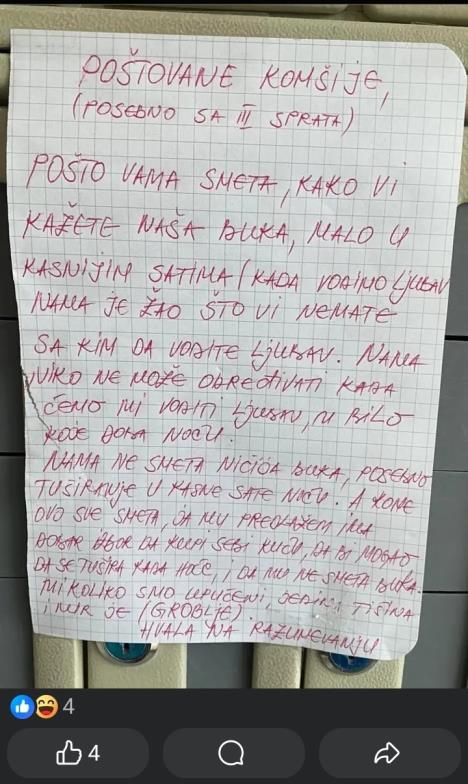 POŠTOVANE KOMŠIJE,
(POSEBNO SA III SPRATA)
POŠTO VAMA SMETA, KAKO VI
KAŽETE NAŠA BUKA, MALO U
KASNIJIM SATIMA (KADA VODIMO LJUBAV
NAMA JE ŽAO ŠTO VI NEMATE
SA KIM DA VODITE LJUBAV. NAMA
NIKO NE MOŽE ODREĐIVATI KADA
ĆEMO MI VODITI LJUBAV, U BILO
KOJE DOBA NOĆU.
NAMA NE SMETA NIČIJA BUKA, POSEBNO
TUŠIRANJE U KASNE SATE NOĆU. A KOME
OVO SVE SMETA, JA MU PREDLAŽEM IMA
DOBAR IZBOR DA KUPI SEBI KUĆU, DA BI MOGAO
DA SE TUŠIRA KADA HOĆE, I DA MU NE SMETA BUKA.
MI KOLIKO SMO UPUĆENI, JEDINI TIŠINA
I MIR JE (GROBLJE).
HVALA NA RAZUMEVANJU
4
4